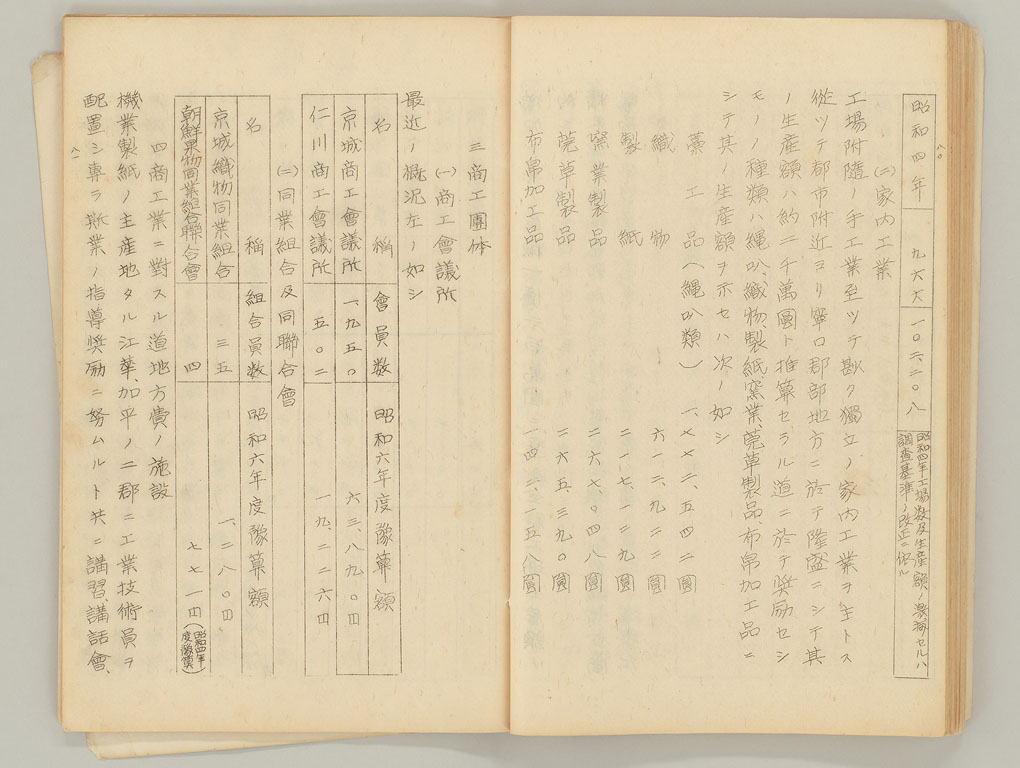 八〇
昭和四年 九六六 一〇、六二〇、八
昭和四年工場数及生産額ノ激減セルハ
調査基準ノ改正ニ依ル
(二)家内工業
工場附隨ノ手工業至ツテ尠ク獨立ノ家内工業ヲ主トス
從ツテ都市附近ヨリ寧ロ郡部地方ニ於テ隆盛ニシテ其
ノ生産額ハ約二千萬圓ト推算セラル道ニ於テ奬励セシ
モノノ種類ハ縄叺、織物、製紙、窯業、莞草製品、布帛加工品ニ
シテ其ノ生産額ヲ示セハ次ノ如シ
藁工品(縄叺類) 一、七七二、五四二圓
織物 六一二、九二二圓
製紙 二一七、一二九圓
窯業製品 二六七、〇四八圓
莞草製品 二六五、三九〇圓
布帛加工品 一四二、一五八圓
三商工團体
(一)商工會議所
最近ノ概況左ノ如シ
名稱 會員数 昭和六年度豫算額
京城商工會議所 一、九五〇 六三、八九〇四
仁川商工會議所 五〇二 一九、二二六四
(二)同業組合及同聯合會
名稱 組合員数 昭和六年度豫算額
京城織物同業組合 三五 一、二八〇四
朝鮮果物同業組合聯合會 四 七七一四(昭和四年度豫算)
四商工業ニ對スル道地方費ノ施設
機業製紙ノ主産地タル江華、加平ノ二郡ニ工業技術員ヲ
配置シ專ラ斯業ノ指導奬励ニ努ムルト共ニ講習、講話會、
八一